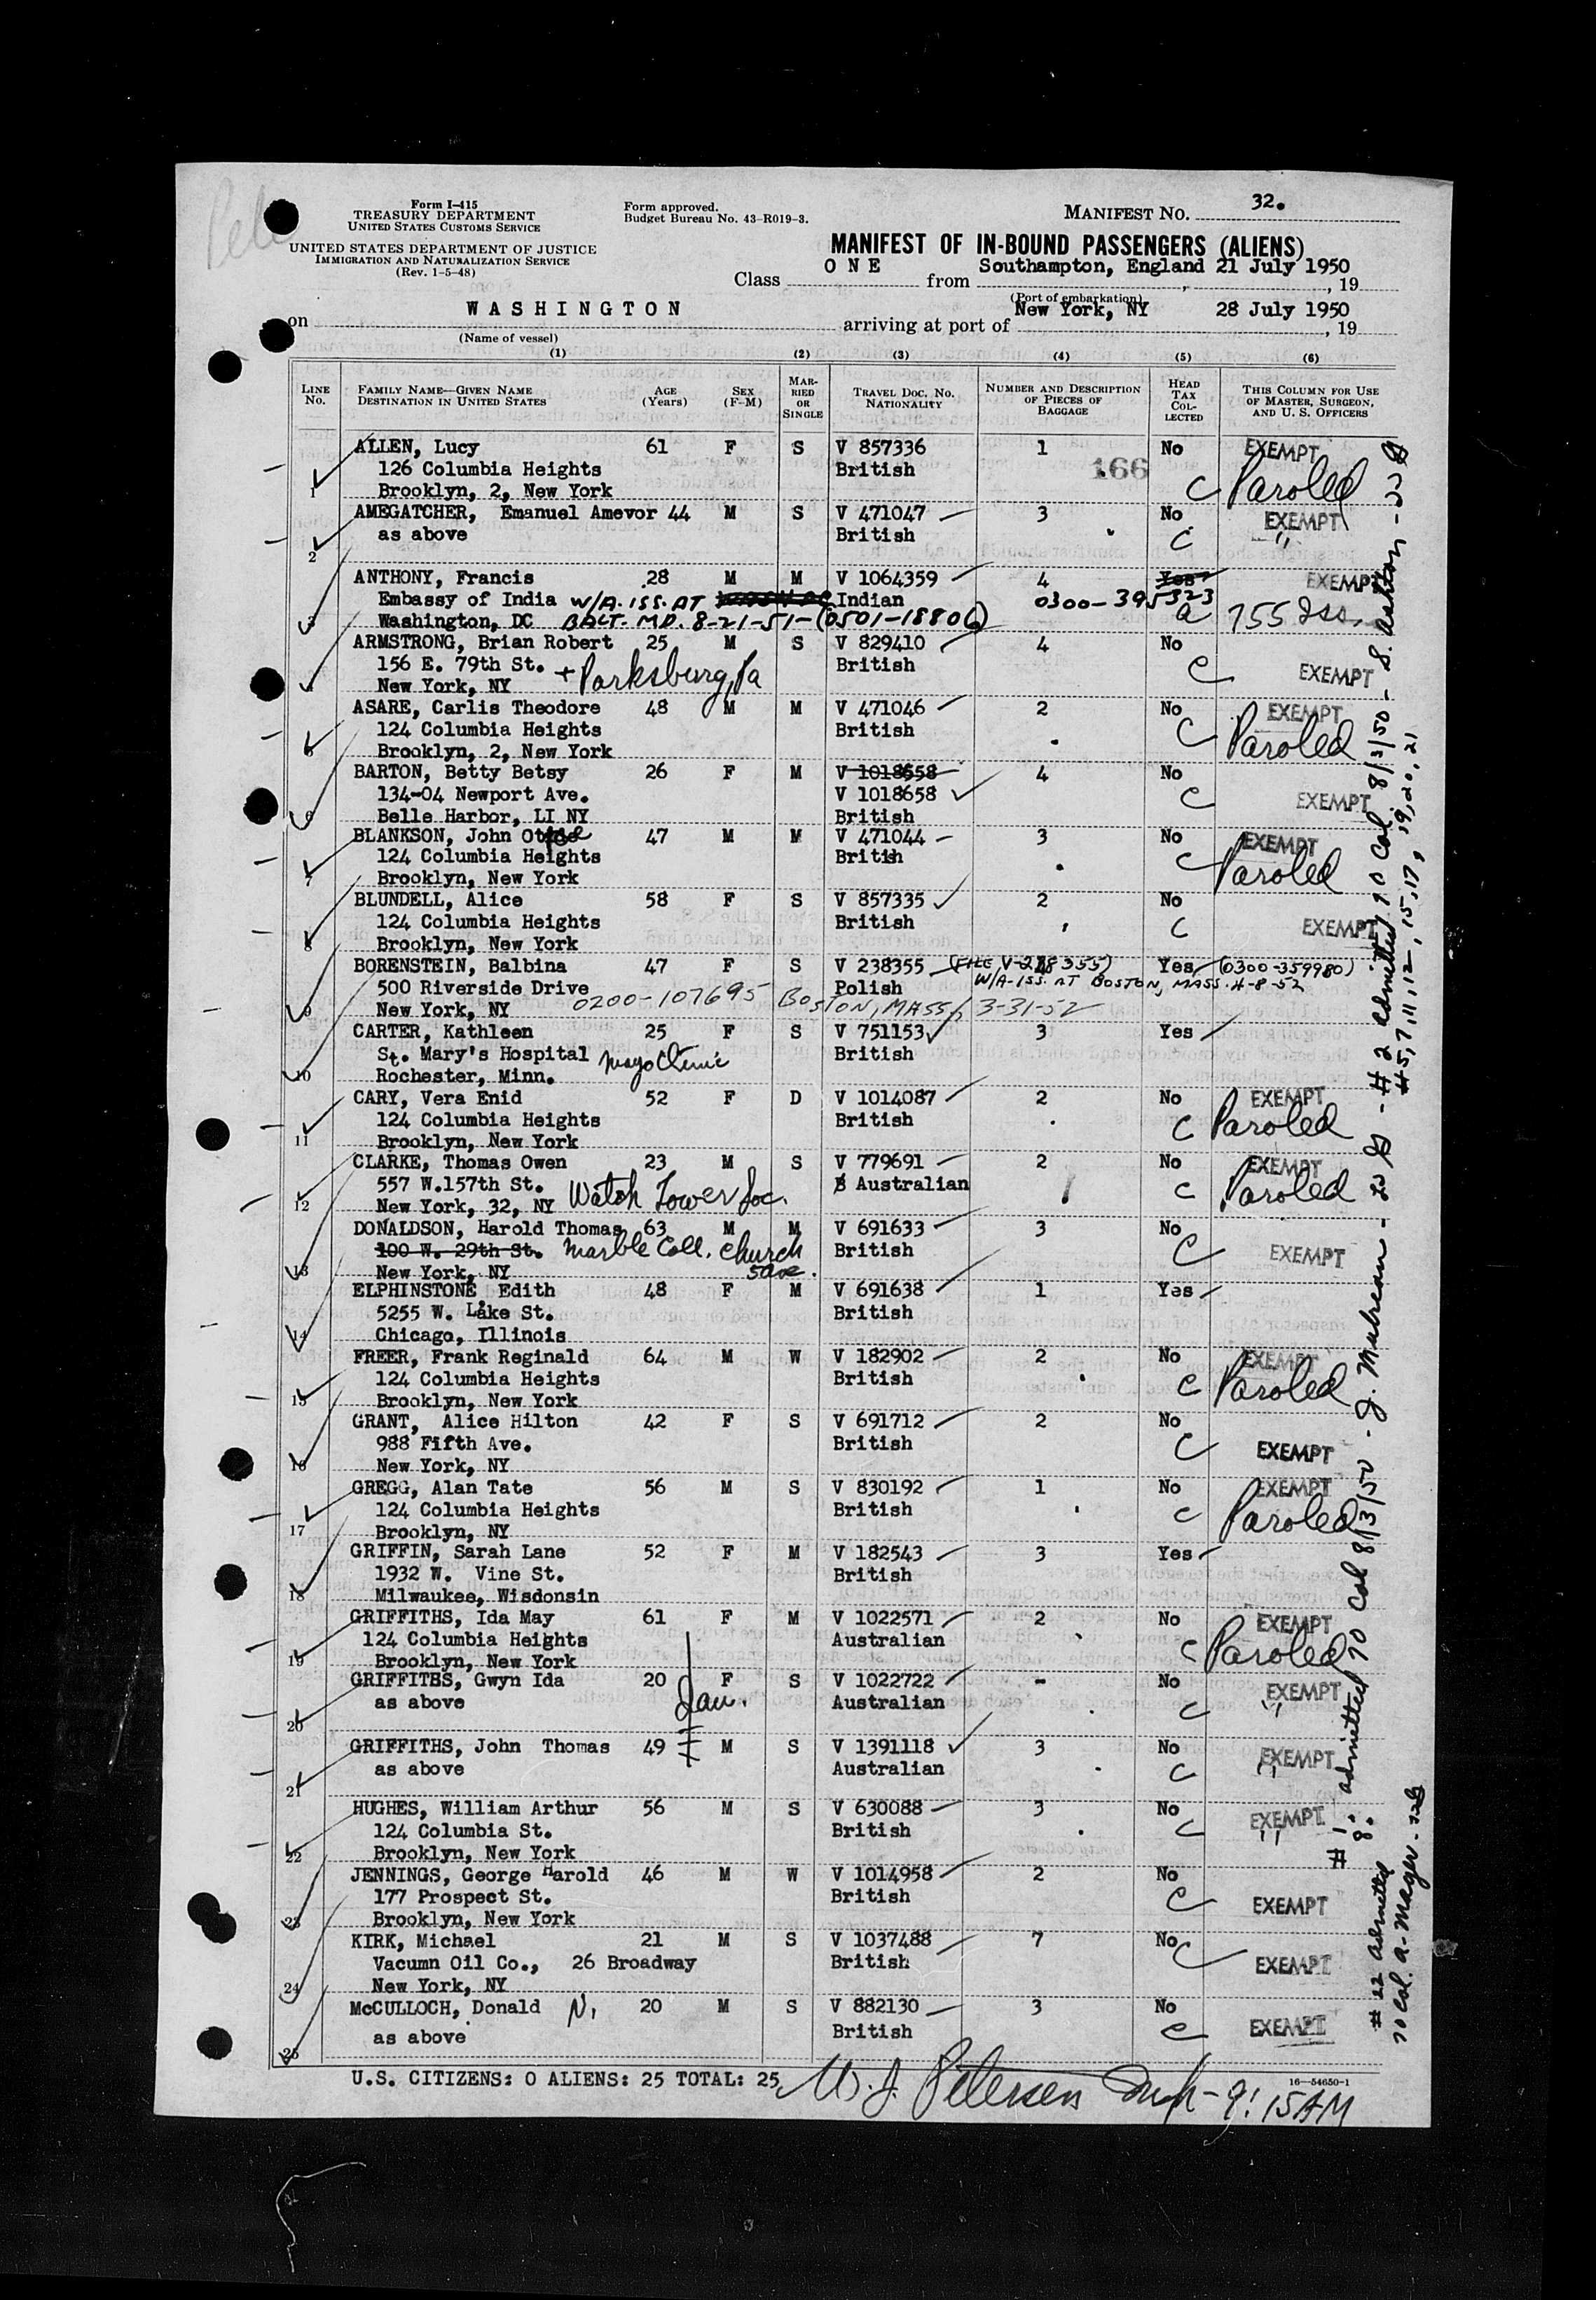 Form I-415
TREASURY DEPARTMENT
UNITED STATES CUSTOMS SERVICE
UNITED STATES DEPARTMENT OF JUSTICE
IMMIGRATION AND NATURALIZATION SERVICE
(Rev. 1-5-48)
Form approved.
Budget Bureau No. 43-R019-3.
MANIFEST NO. 32.
MANIFEST OF IN-BOUND PASSENGERS (ALIENS)
Class ONE from Southampton, England 21 July 1950, 19
(Port of embarkation)
on WASHINGTON arriving at port of New York, NY 28 July 1950, 19
(Name of vessel)
(1) (2) (3) (4) (5) (6)
LINE No. FAMILY NAME—GIVEN NAME DESTINATION IN UNITED STATES AGE (Years) SEX (F-M) MARRIED OR SINGLE TRAVEL DOC. NO. NATIONALITY NUMBER AND DESCRIPTION OF PIECES OF BAGGAGE HEAD TAX COLLECTED THIS COLUMN FOR USE OF MASTER, SURGEON, AND U. S. OFFICERS
ALLEN, Lucy 61 F S V 857336 1 No EXEMPT
126 Columbia Heights British 166
1 Brooklyn, 2, New York C Paroled
AMEGATCHER, Emanuel Amevor 44 M S V 471047 3 No EXEMPT
as above British C "
2
ANTHONY, Francis 28 M M V 1064359 4 Yes EXEMPT
Embassy of India W/A. ISS. AT WASH DC Indian 0300-395323
3 Washington, DC BALT. MD. 8-21-51-(0501-18806) a 755 Iss.
ARMSTRONG, Brian Robert 25 M S V 829410 4 No
156 E. 79th St. + Parksburg, Pa British C EXEMPT
4 New York, NY
ASARE, Carlis Theodore 48 M M V 471046 2 No EXEMPT
124 Columbia Heights British C Paroled
5 Brooklyn, 2, New York
BARTON, Betty Betsy 26 F M V 1018558 4 No
134-04 Newport Ave. V 1018658 C EXEMPT
6 Belle Harbor, LI NY British
BLANKSON, John 47 M M V 471044 3 No EXEMPT
124 Columbia Heights Britih C Paroled
7 Brooklyn, New York
BLUNDELL, Alice 58 F S V 857335 2 No
124 Columbia Heights British C EXEMPT
8 Brooklyn, New York
BORENSTEIN, Balbina 47 F S V 238355 (FILE V-238355) Yes (0300-359980)
500 Riverside Drive Polish W/A-ISS. AT BOSTON, MASS. 4-8-52
9 New York, NY 0200-107695 BOSTON, MASS, 3-31-52
CARTER, Kathleen 25 F S V 751153 3 Yes
St. Mary's Hospital Mayo Clinic British
10 Rochester, Minn.
CARY, Vera Enid 52 F D V 1014087 2 No EXEMPT
124 Columbia Heights British C Paroled
11 Brooklyn, New York
CLARKE, Thomas Owen 23 M S V 779691 2 No EXEMPT
557 W.157th St. Australian C Paroled
12 New York, 32, NY Watch Tower Soc.
DONALDSON, Harold Thomas 63 M M V 691633 3 No
100 W. 29th St. Marble Coll. Church British C EXEMPT
13 New York, NY 5 Ave.
ELPHINSTONE Edith 48 F M V 691638 1 Yes
5255 W. Lake St. British
14 Chicago, Illinois
FREER, Frank Reginald 64 M W V 182902 2 No EXEMPT
124 Columbia Heights British C Paroled
15 Brooklyn, New York
GRANT, Alice Hilton 42 F S V 691712 2 No
988 Fifth Ave. British C EXEMPT
16 New York, NY
GREGG, Alan Tate 56 M S V 830192 1 No EXEMPT
124 Columbia Heights British C Paroled
17 Brooklyn, NY
GRIFFIN, Sarah Lane 52 F M V 182543 3 Yes
1932 W. Vine St. British
18 Milwaukee, Wisdonsin
GRIFFITHS, Ida May 61 F M V 1022571 2 No EXEMPT
124 Columbia Heights Australian C Paroled
19 Brooklyn, New York
GRIFFITHS, Gwyn Ida 20 F S V 1022722 - No EXEMPT
as above Dau. Australian C "
20
GRIFFITHS, John Thomas 49 M S V 1391118 3 No EXEMPT
as above Australian C "
21
HUGHES, William Arthur 56 M S V 630088 3 No EXEMPT
124 Columbia St. British C "
22 Brooklyn, New York
JENNINGS, George Harold 46 M W V 1014958 2 No
177 Prospect St. British C EXEMPT
23 Brooklyn, New York
KIRK, Michael 21 M S V 1037488 7 No C
Vacumn Oil Co., 26 Broadway British EXEMPT
24 New York, NY
McCULLOCH, Donald N. 20 M S V 882130 3 No
as above British C EXEMPT
25
U.S. CITIZENS: 0 ALIENS: 25 TOTAL: 25
W. J. Petersen Insp- 9:15 AM
16—54650-1
# 2 admitted 70 Col. 8/3/50 - S. Ashton -
# 5, 7, 11, 12, 15, 17, 19, 20, 21
# 1 admitted 70 Col 8/3/50 - J.
8.
# 22 admitted
70 Col. A. Mager